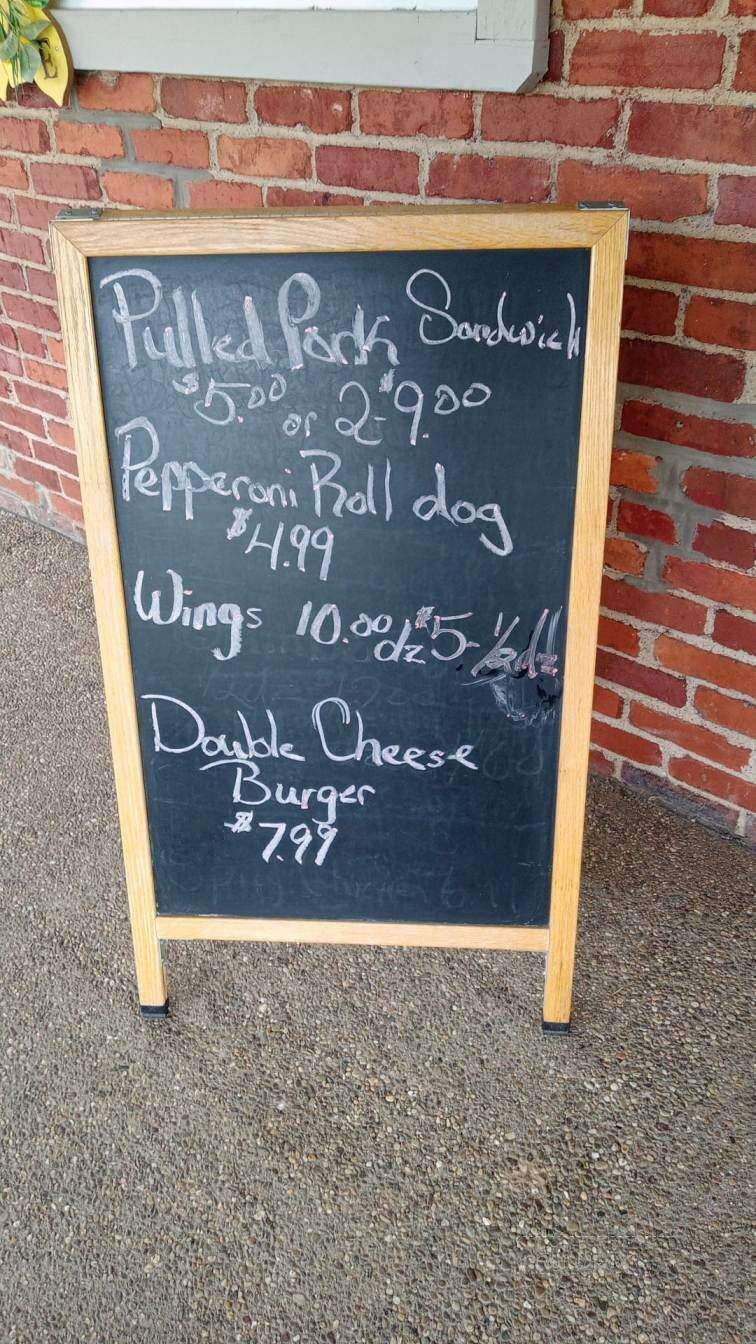 E
Pulled Pork Sandwich
$5.00 or 2-$9.00
Pepperoni Roll dog
$4.99
Wings 10.00 dz $5-½dz
Double Cheese
Burger
$7.99